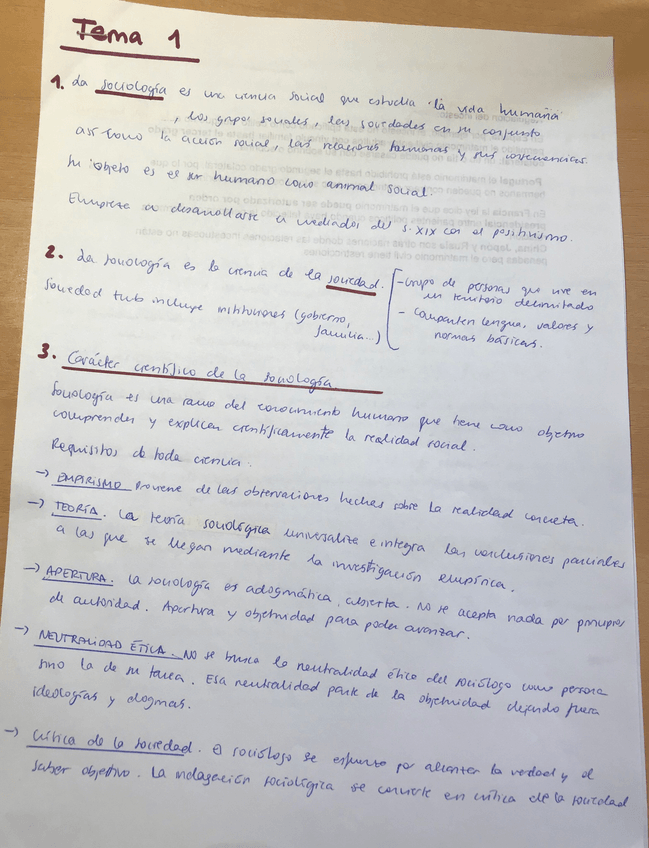 Tema 1
1. La sociología es una ciencia social que estudia la vida humana
, los grupos sociales, las sociedades en su conjunto
así como la acción social, las relaciones humanas y sus consecuencias.
Su objeto es el ser humano como animal social.
Empieza a desarrollarse a mediados del s. XIX con el positivismo.
2. La sociología es la ciencia de la sociedad.
- Grupo de personas que vive en
un territorio delimitado
- Comparten lengua, valores y
normas básicas.
Sociedad tmb incluye instituciones (gobierno,
familia...)
3. Carácter científico de la sociología.
Sociología es una rama del conocimiento humano que tiene como objetivo
comprender y explicar científicamente la realidad social.
Requisitos de toda ciencia.
→ EMPIRISMO Proviene de las observaciones hechas sobre la realidad concreta.
→ TEORÍA. La teoría sociológica universaliza e integra las conclusiones parciales
a las que se llegan mediante la investigación empírica.
→ APERTURA. La sociología es adogmática, abierta. No se acepta nada por principios
de autoridad. Apertura y objetividad para poder avanzar.
→ NEUTRALIDAD ÉTICA. No se busca la neutralidad ética del sociólogo como persona
sino la de su tarea. Esa neutralidad parte de la objetividad dejando fuera
ideologías y dogmas.
→ Crítica de la sociedad. El sociólogo se esfuerza por alcanzar la verdad y el
saber objetivo. La indagación sociológica se convierte en crítica de la sociedad